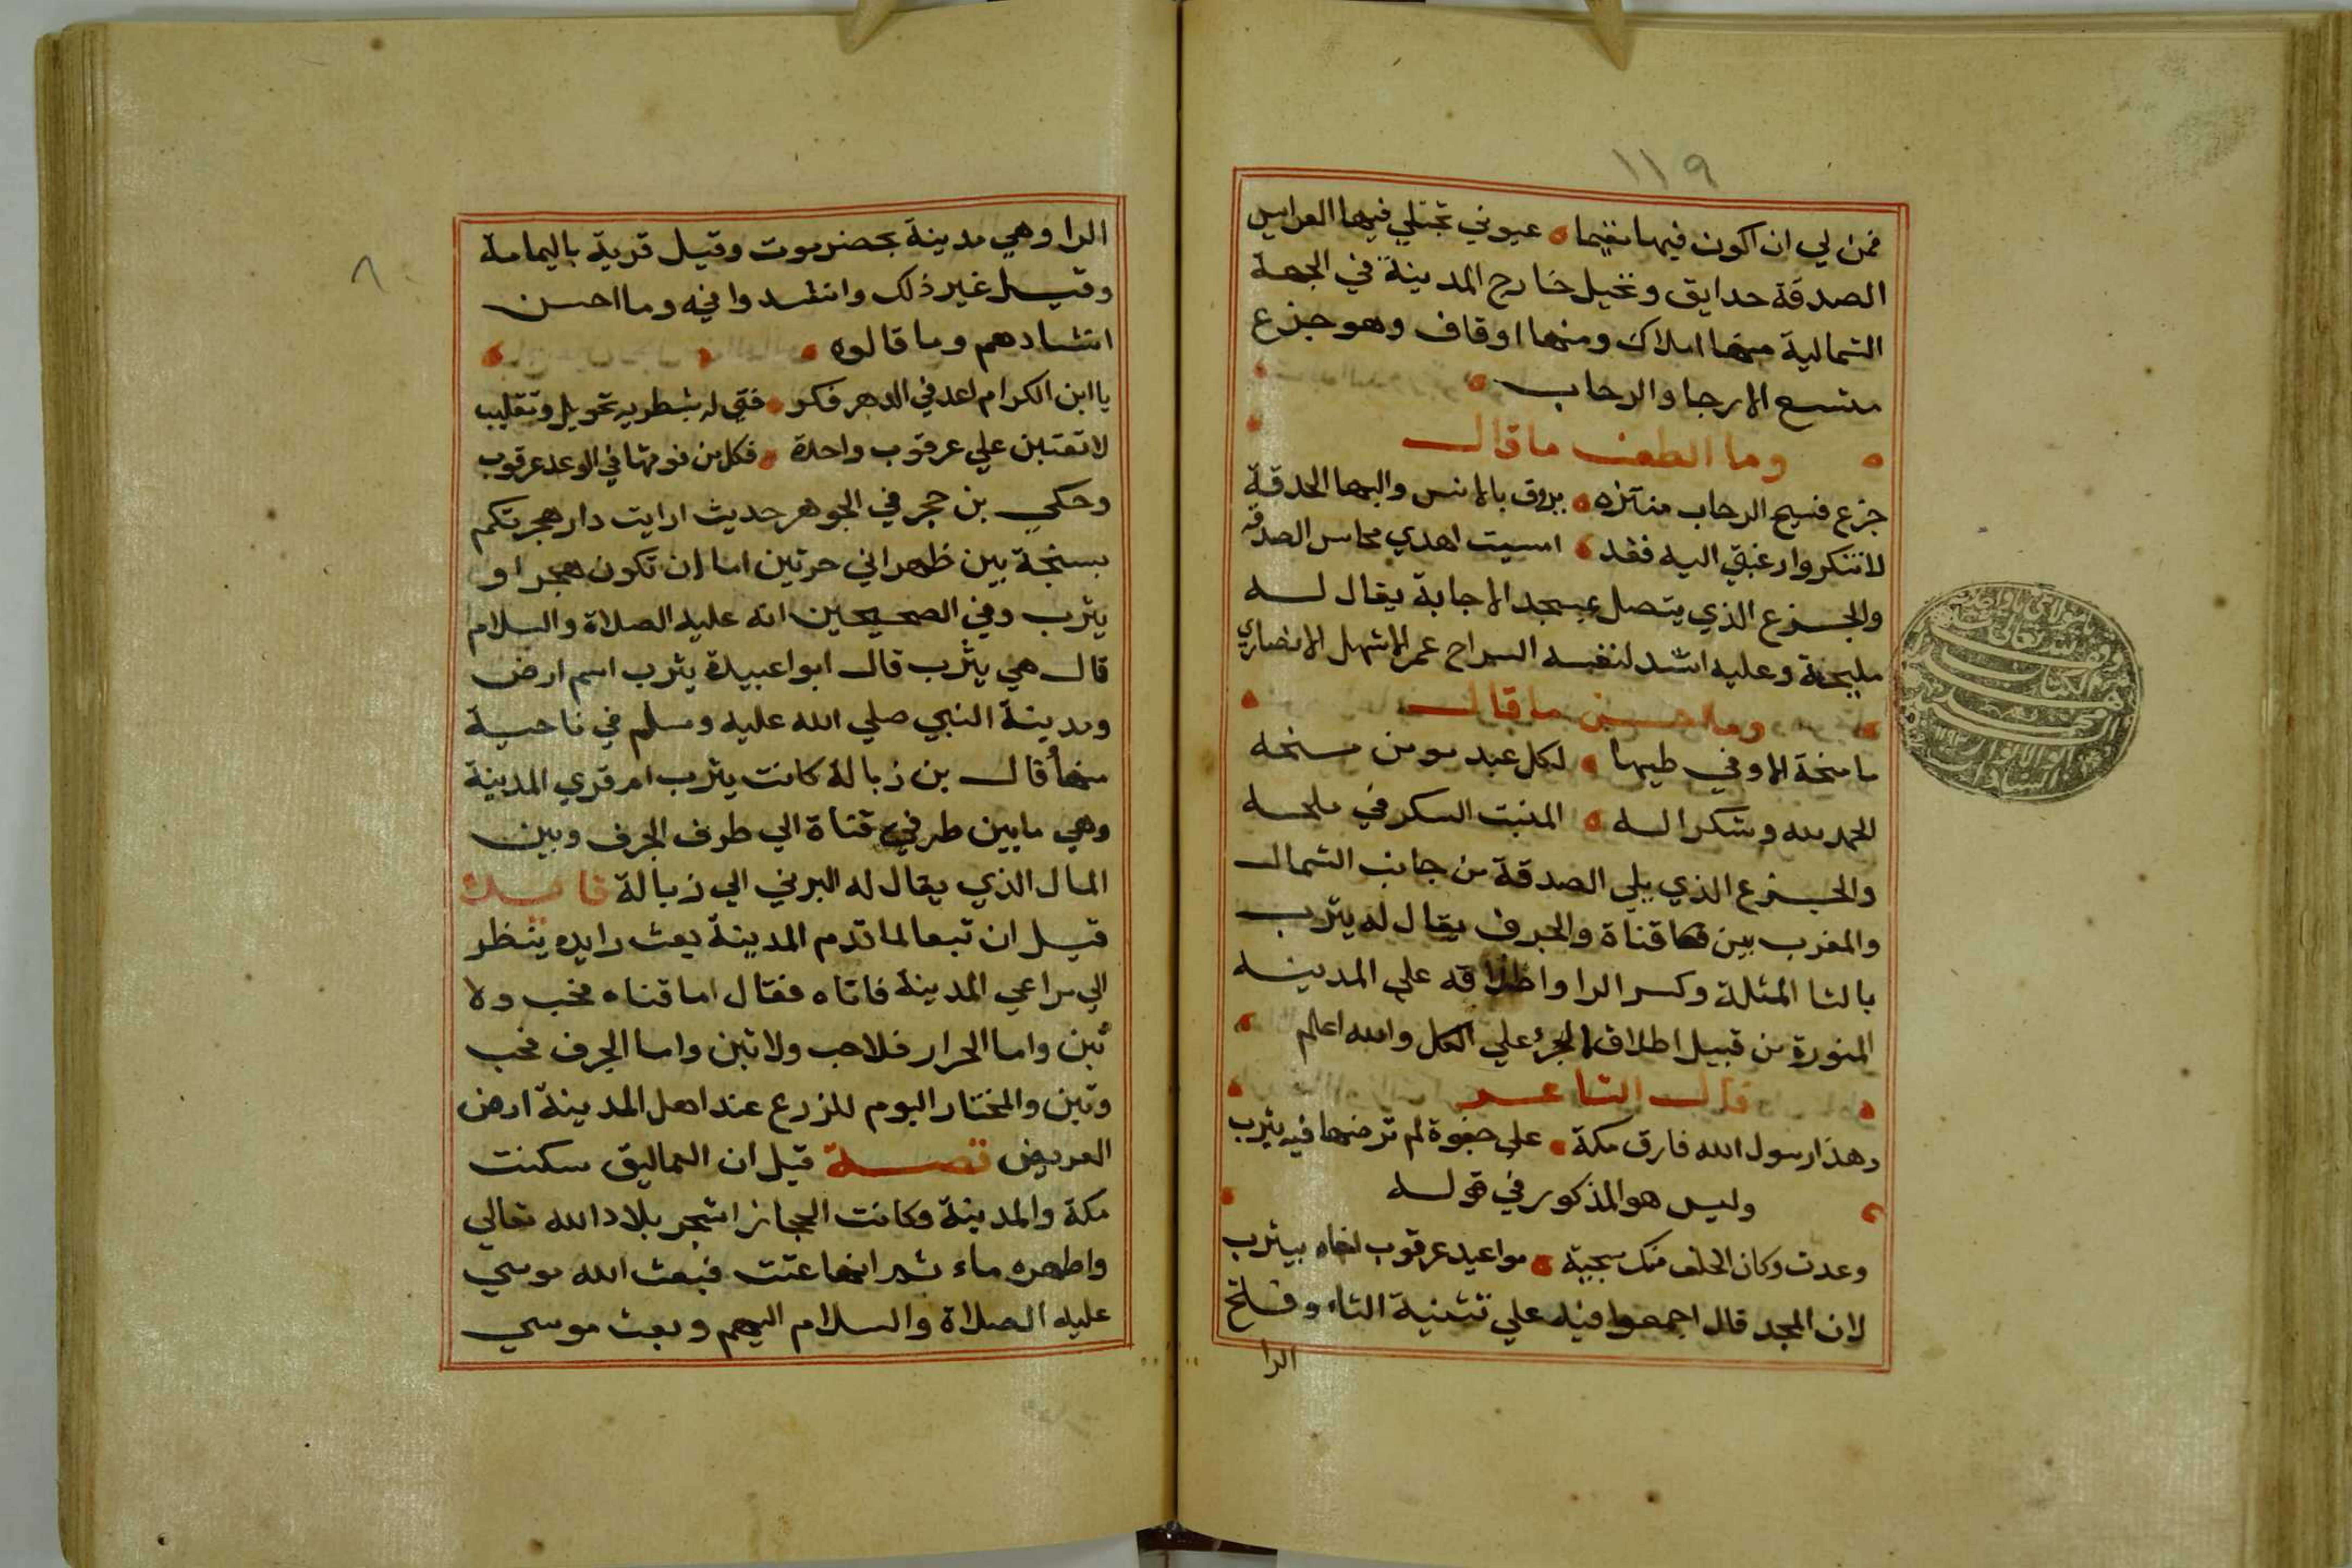 ١١٩
فمن لي ان اكون فيها مقيما عيوني تجتلي فيها العرايس
الصدقة حدايق ونخيل خارج المدينة في الجهة
الشمالية منها املاك ومنها اوقاف وهو جزع
متسع الارجا والرحاب
وما الطف ما قال
جزع فسيح الرحاب منتزه يروق بالانس والبها الحدقة
لا تنكروا رغبتي اليه فقد امسيت اهدي محاسن الصدقه
والجزع الذي يتصل بمسجد الاجابة يقال له
مليحة وعليه انشد لنفسه السراح عمر الاشهل الانصاري
وما احسن ما قال
ما منحة الا وفي طيها لكل عبد مومن منحه
الحمد لله وشكرا له المنبت السكر في ملحه
والجزع الذي يلي الصدقة من جانب الشمال
والمغرب بين قناة والجرف يقال له يثرب
بالثا المثلثة وكسر الرا واطلاقه علي المدينه
المنورة من قبيل اطلاق الجزء علي الكل والله اعلم
قال الشاعر
وهذا رسول الله فارق مكة علي جفوة لم ترضها فيه يثرب
وليس هو المذكور في قوله
وعدت وكان الخلف منك سجية مواعيد عرقوب اخاه بيثرب
لان المجد قال اجمعوا فيه علي تثنية التاء وفتح
الرا
٨
الرا وهي مدينة بحضرموت وقيل قرية باليمامة
وقيل غير ذلك وانشدوا فيه وما احسن
انشادهم وما قالوه
يا ابن الكرام اعد في الدهر فكر فتي له بشطريه تحويل وتقليب
لا تعتبن علي عرقوب واحدة فكل من فوقها في الوعد عرقوب
وحكي بن حجر في الجوهر حديث ارايت دار هجرتكم
بسنجة بين ظهراني حرتين اما ان تكون هجر او
يثرب وفي الصحيحين انه عليه الصلاة والسلام
قال هي يثرب قال ابوا عبيدة يثرب اسم ارض
ومدينة النبي صلي الله عليه وسلم في ناحية
منها قال بن زبالة كانت يثرب ام قري المدينة
وهي ما بين طرفي قناة الي طرف الجرف وبين
المال الذي يقال له البرني الي زبالة فايدة
قيل ان تبعا لما قدم المدينة بعث رايده ينظر
الي مراعي المدينة فاتاه فقال اما قناه فحب ولا
تبن واما الحرار فلا حب ولا تبن واما الجرف فحب
وتبن والمختار اليوم للزرع عند اهل المدينة ارض
العريض قصة قيل ان العماليق سكنت
مكة والمدينة وكانت الحجاز اشجر بلاد الله تعالي
واطهره ماء ثم انها عتت فبعث الله موسي
عليه الصلاة والسلام اليهم وبعث موسي